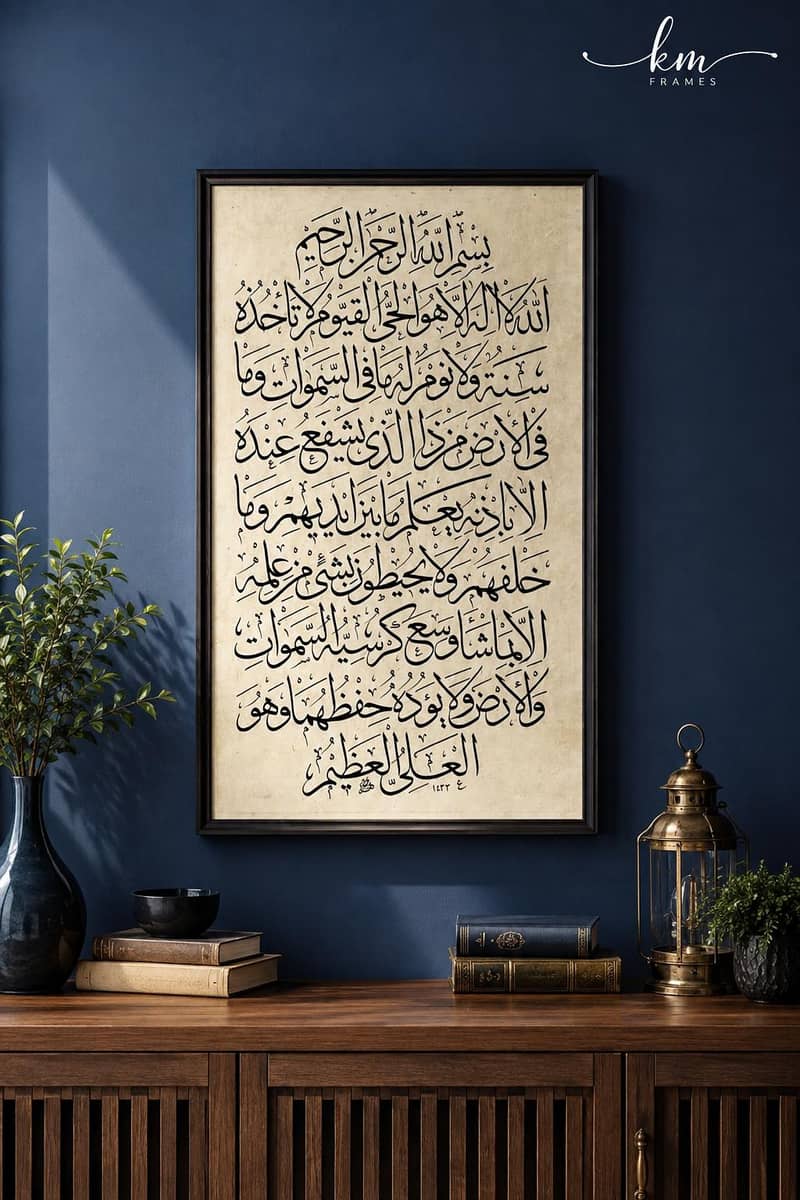 km
FRAMES
بسم الله الرحمن الرحيم
الله لا اله الا هو الحي القيوم لا تأخذه
سنة ولا نوم له ما في السموات وما
في الأرض من ذا الذي يشفع عنده
الا باذنه يعلم ما بين ايديهم وما
خلفهم ولا يحيطون بشئ من علمه
الا بما شاء وسع كرسيه السموات
والأرض ولا يؤده حفظهما وهو
العلي العظيم
١٤٣٢